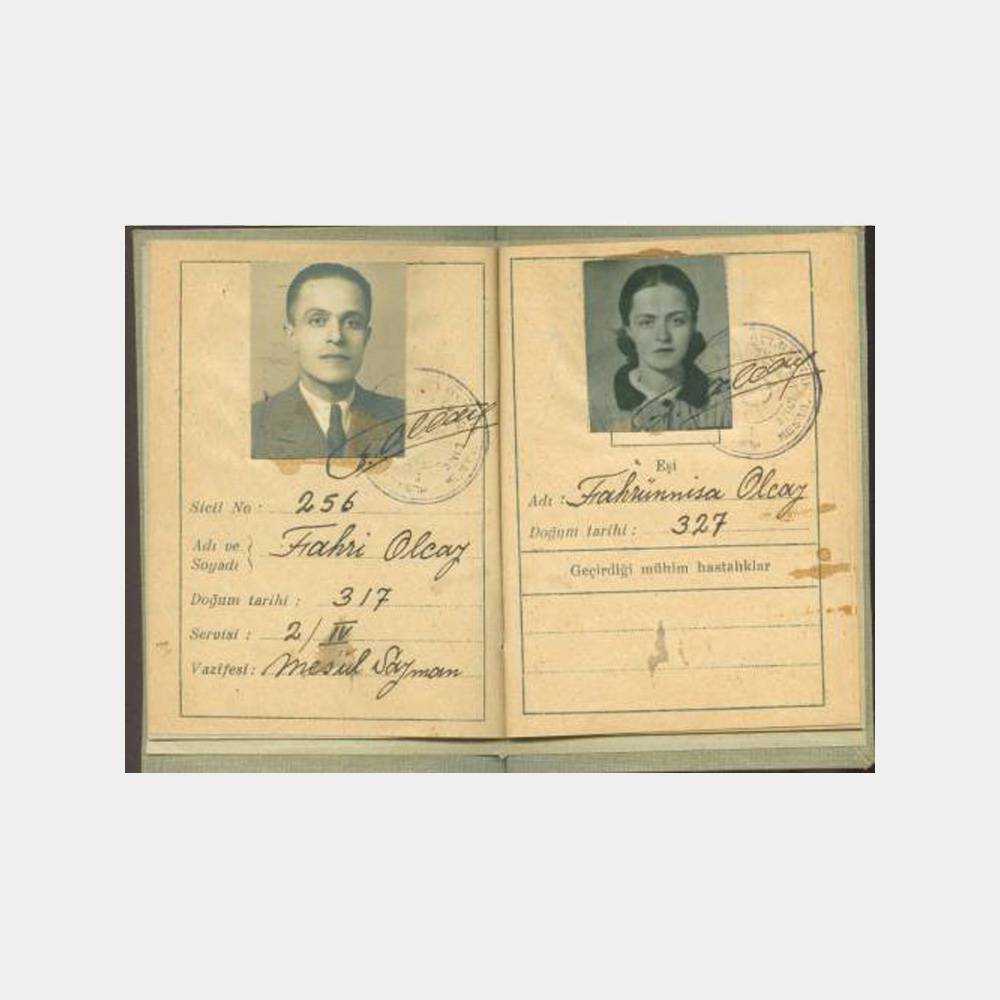 Sicil No : 256
Adı ve Soyadı } Fahri Olcay
Doğum tarihi : 317
Servisi : 2/IV
Vazifesi : Mesül Sayman
Eşi
Adı : Fahrünnisa Olcay
Doğum tarihi : 327
Geçirdiği mühim hastalıklar